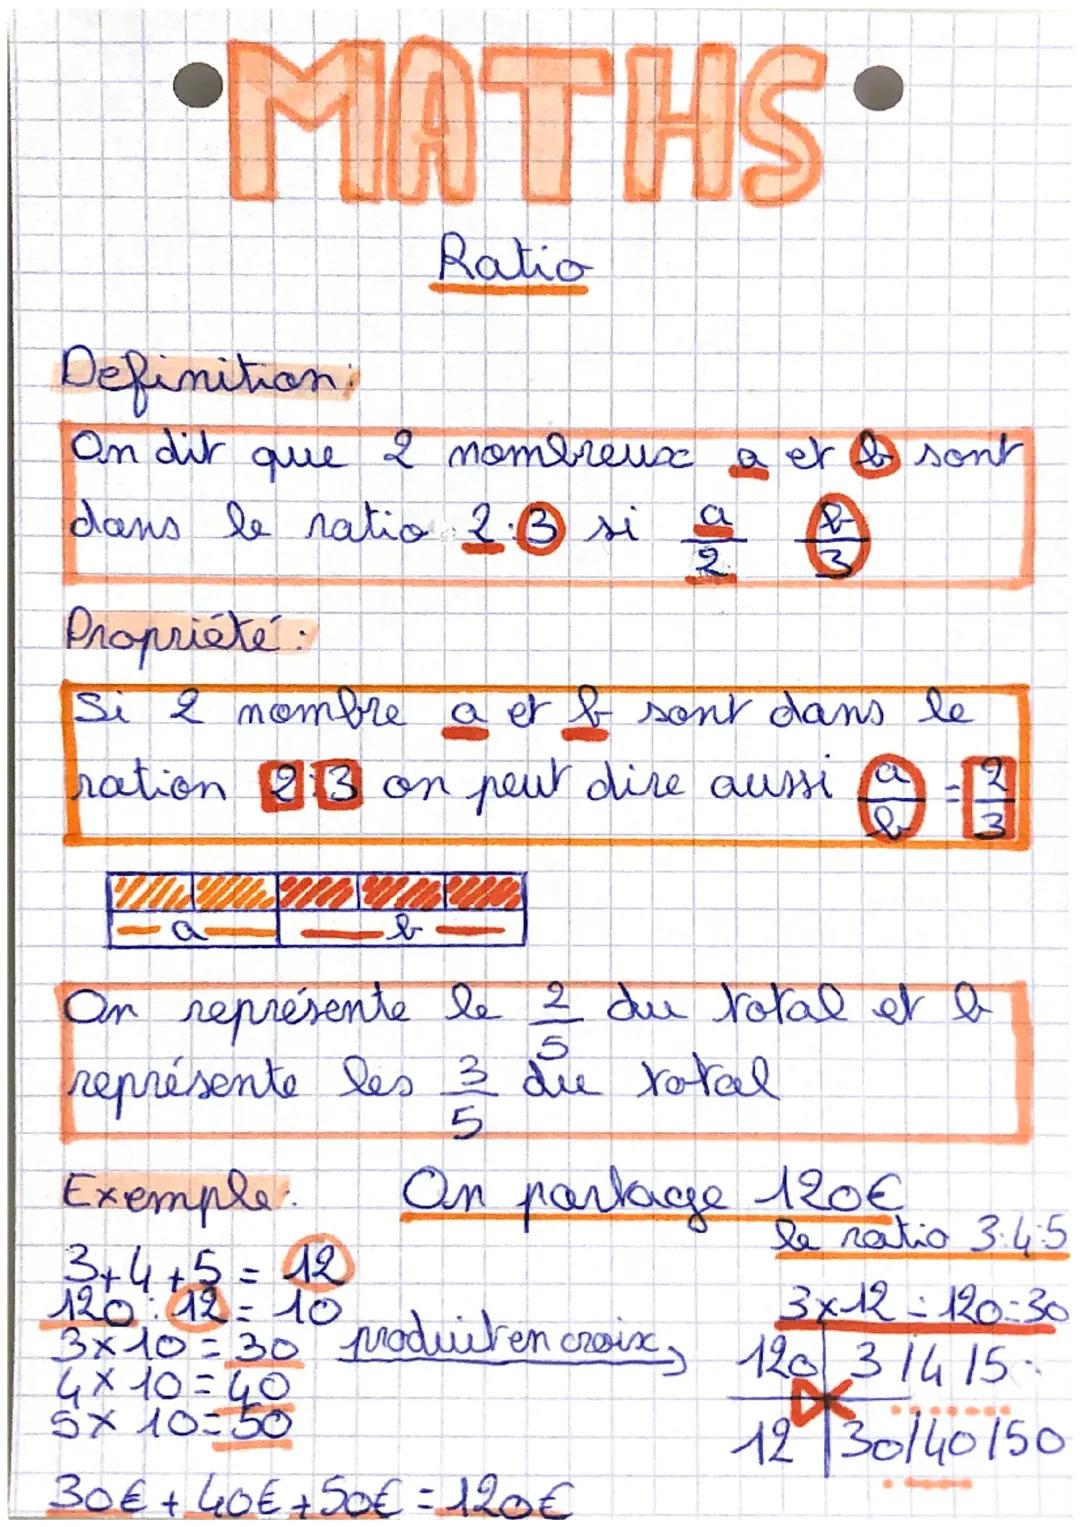 MATHS
Ratio
Definition:
On dit que 2 nombreux a et b sont
dans le ratio 2:3 si a/2 b/3
Propriété:
Si 2 nombre a et b sont dans le
ration 2:3 on peut dire aussi a/b = 2/3
a b
On représente le 2/5 du total et b
représente les 3/5 du total
Exemple: On partage 120€
le ratio 3:4:5
3+4+5 = 12
120 : 12 = 10
3×10 = 30
4×10 = 40
5×10=50
produit en croix
3×12 = 120=30
120 3/4/5
12 30/40/50
30€ + 40€ + 50€ = 120€